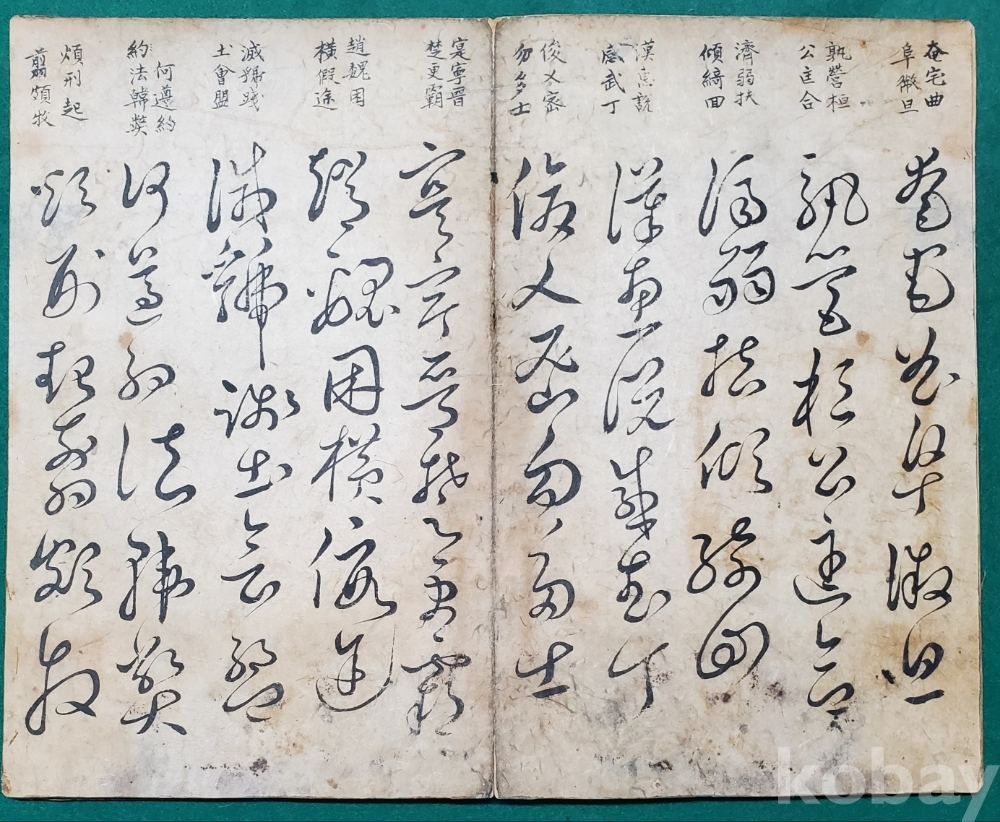 奄宅曲
阜微旦
奄宅曲阜微旦
孰營桓
公匡合
孰營桓公匡合
濟弱扶
傾綺回
濟弱扶傾綺回
漢惠說
感武丁
漢惠說感武丁
俊乂密
勿多士
俊乂密勿多士
寔寧晉
楚更霸
寔寧晉楚更霸
趙魏困
橫假途
趙魏困橫假途
滅虢踐
土會盟
滅虢踐土會盟
何遵約
約法韓弊
何遵約法韓弊
煩刑起
翦頗牧
煩刑起翦頗牧
kobay